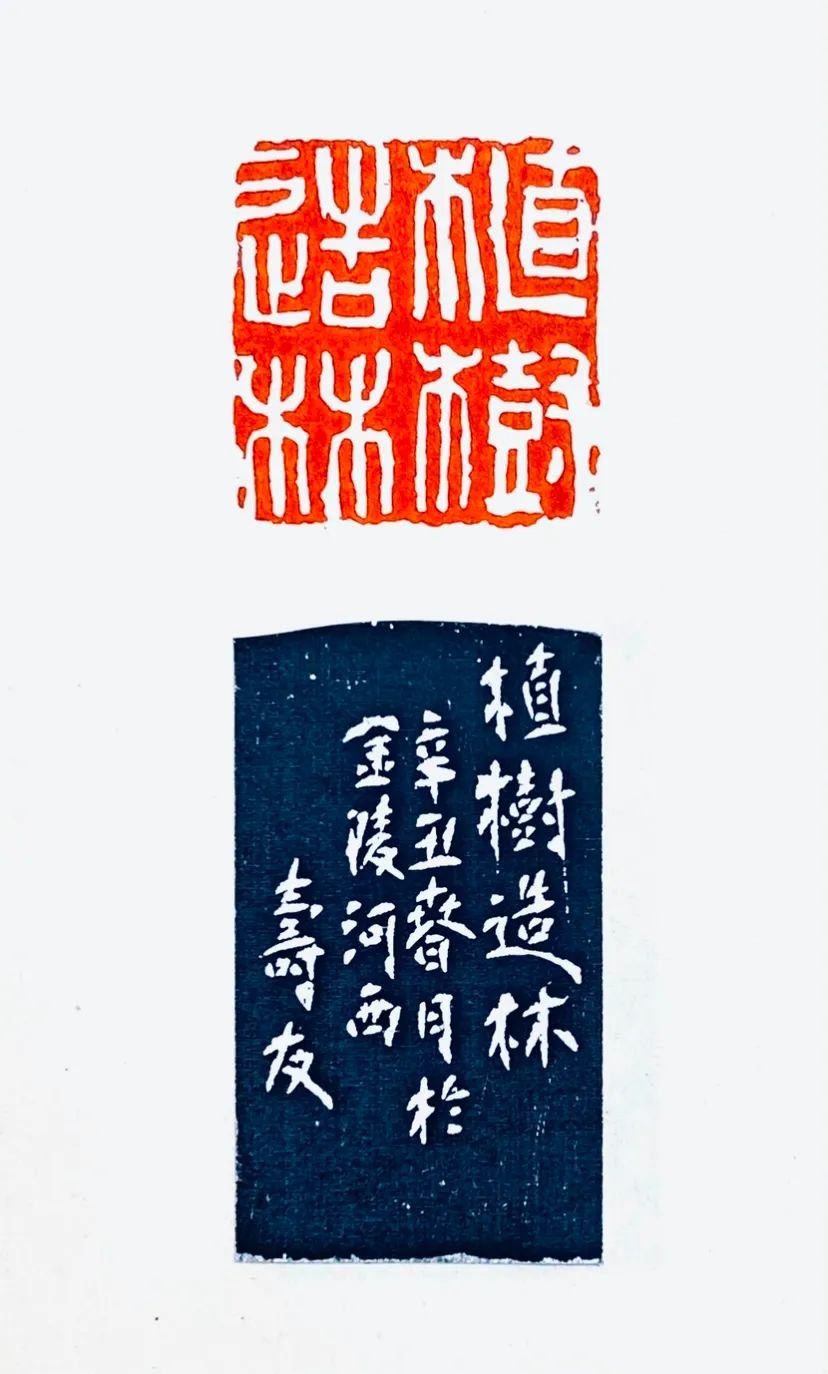 植樹
造林
植樹造林
辛丑春月於
金陵河西
壽友